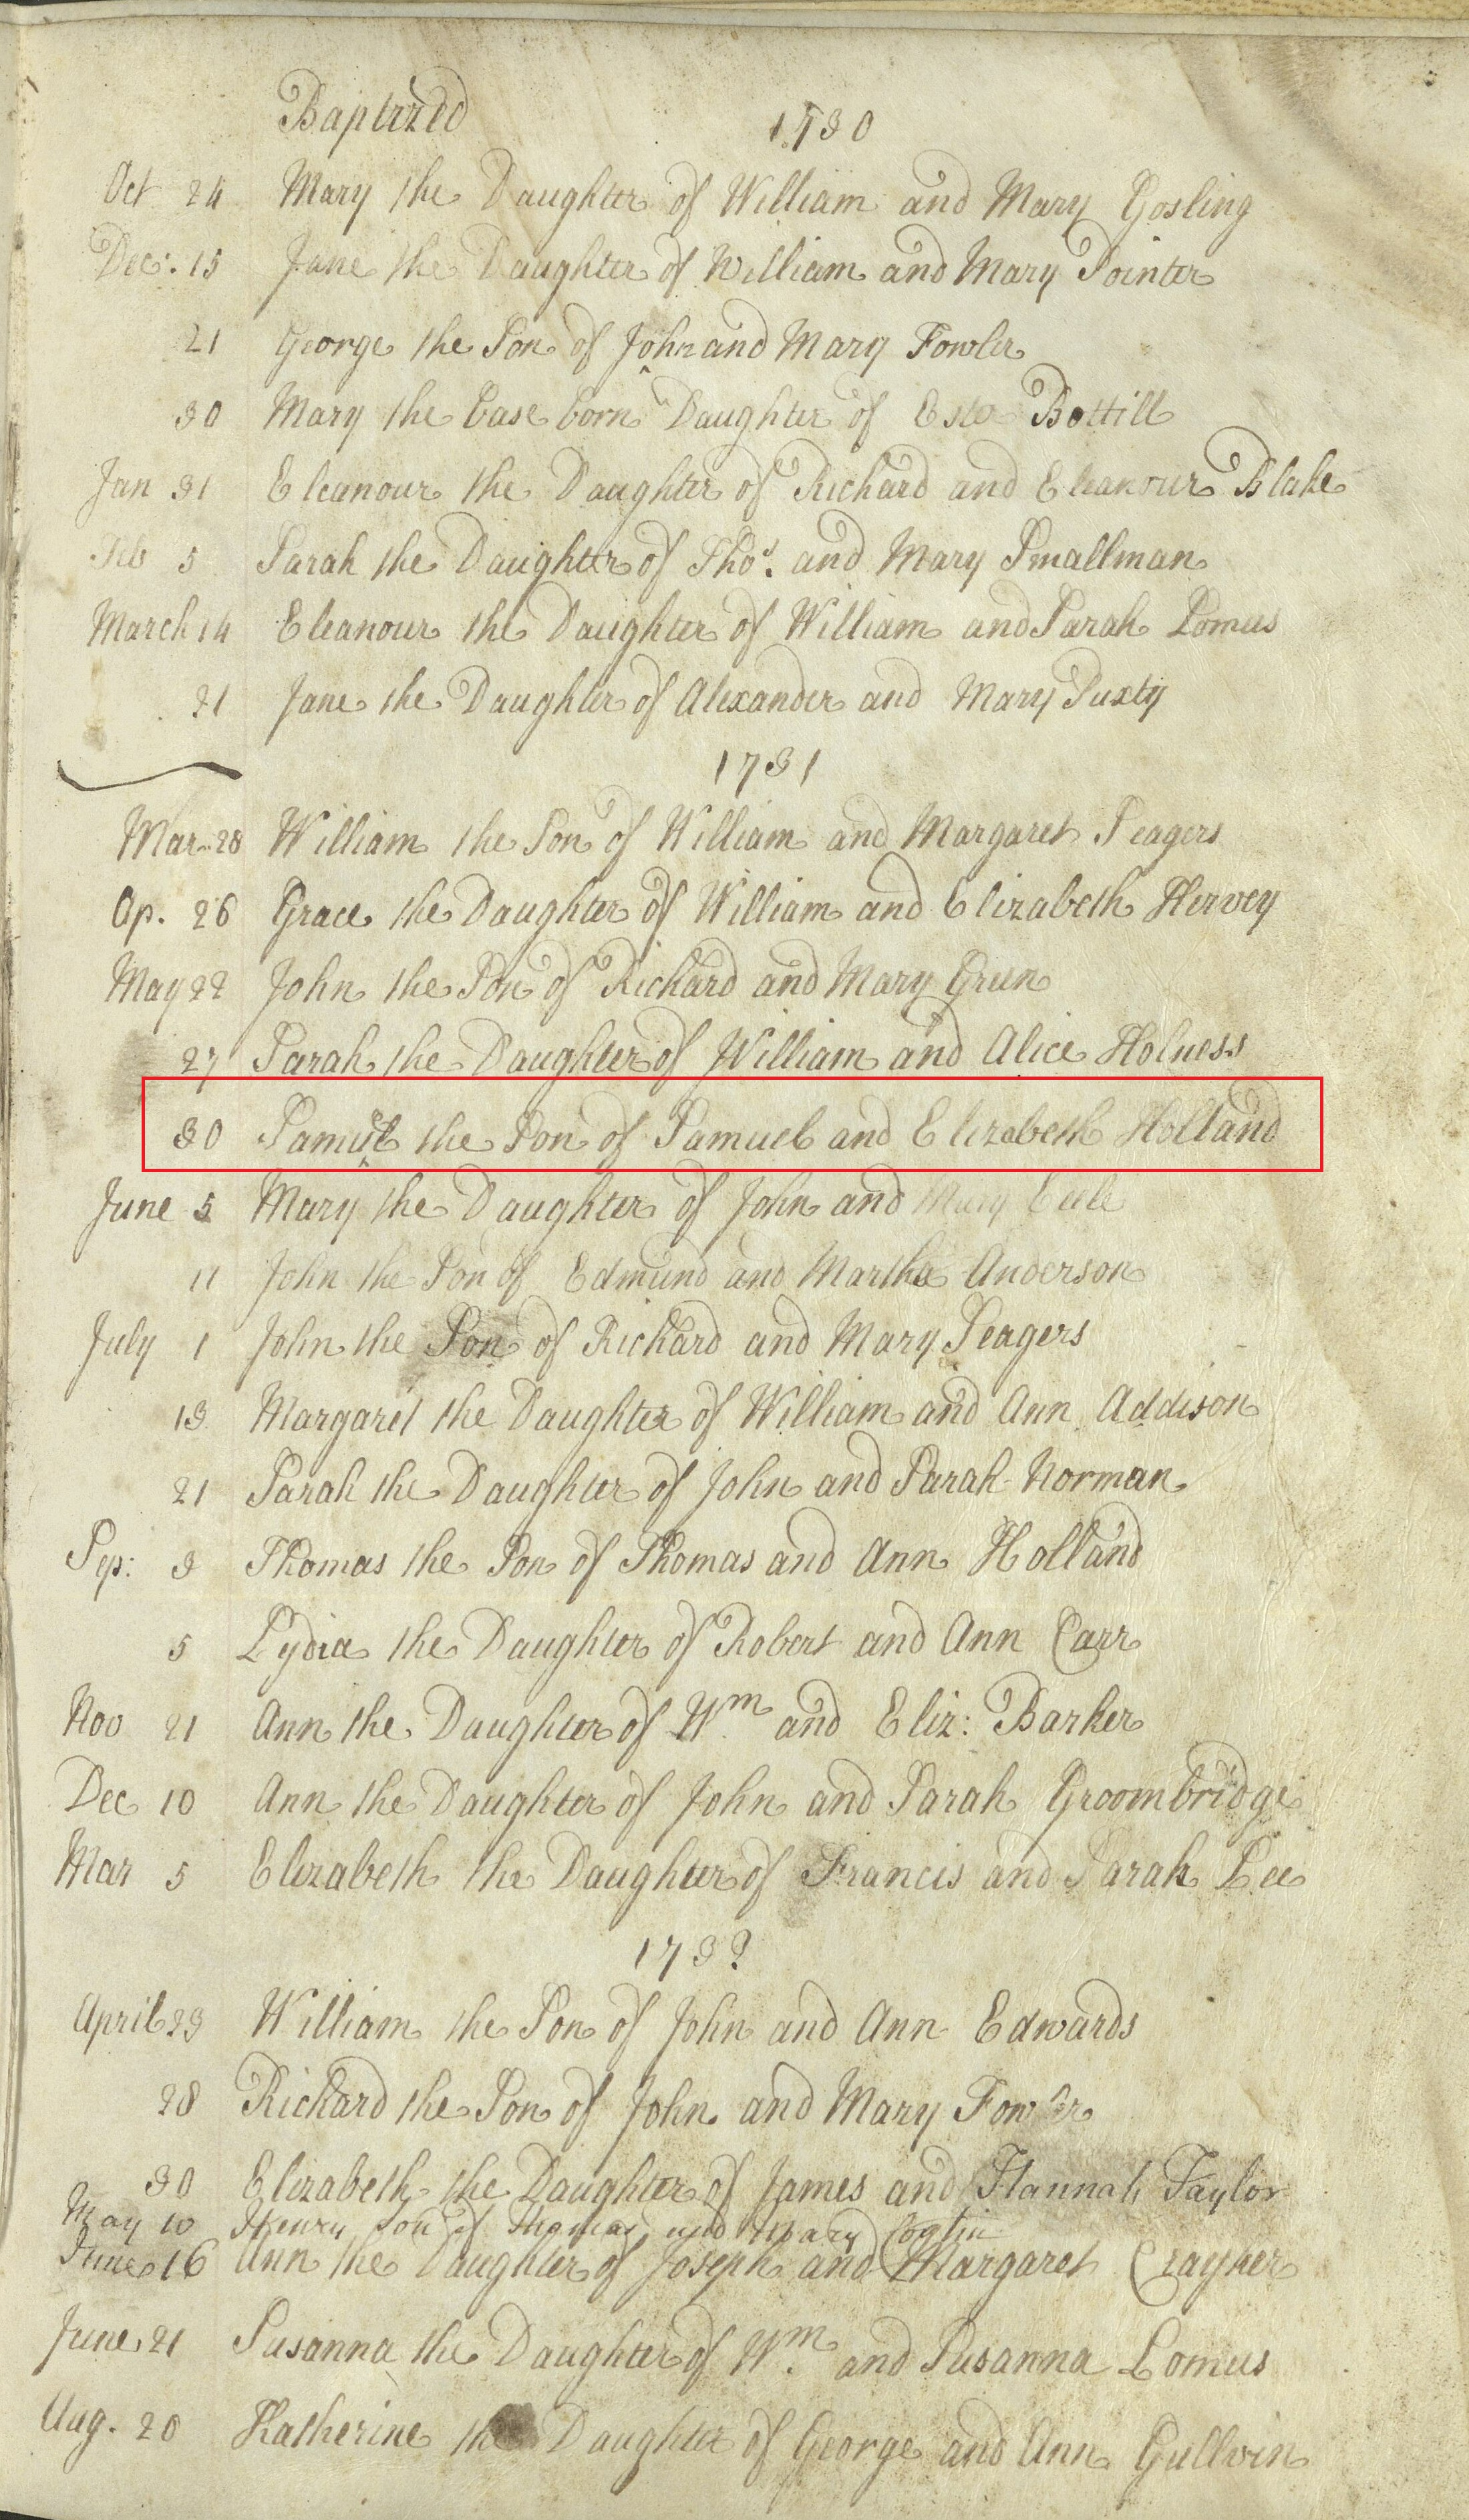 Baptized 1730
Oct 24 Mary the Daughter of William and Mary Gosling
Dec:. 15 Jane the Daughter of William and Mary Pointer
21 George the Son of John and Mary Fowler
30 Mary the base born Daughter of Ester Bottill
Jan 31 Eleanour the Daughter of Richard and Eleanour Blake
Feb 5 Sarah the Daughter of Thos. and Mary Smallman
March 14 Eleanour the Daughter of William and Sarah Lomus
21 Jane the Daughter of Alexander and Mary Puxty
1731
Mar. 28 William the Son of William and Margaret Seagers
Ap. 26 Grace the Daughter of William and Elizabeth Hervey
May 22 John the Son of Richard and Mary Green
27 Sarah the Daughter of William and Alice Holness
30 Samuel the Son of Samuel and Elizabeth Holland
June 5 Mary the Daughter of John and Mary
11 John the Son of Edmund and Martha Anderson
July 1 John the Son of Richard and Mary Seagers
13 Margaret the Daughter of William and Ann Addison
21 Sarah the Daughter of John and Sarah Norman
Sep: 3 Thomas the Son of Thomas and Ann Holland
5 Lydia the Daughter of Robert and Ann Carr
Nov 21 Ann the Daughter of Wm. and Eliz: Barker
Dec 10 Ann the Daughter of John and Sarah Groombridge
Mar 5 Elizabeth the Daughter of Francis and Sarah Lee
1732
April 23 William the Son of John and Ann Edwards
28 Richard the Son of John and Mary Fowler
30 Elizabeth the Daughter of James and Hannah Taylor
May 10 Henry Son of Thomas and Mary
June 16 Ann the Daughter of Joseph and Margaret Crayker
June 21 Susanna the Daughter of Wm. and Susanna Lomus
Aug. 20 Katherine the Daughter of George and Ann Gullvin